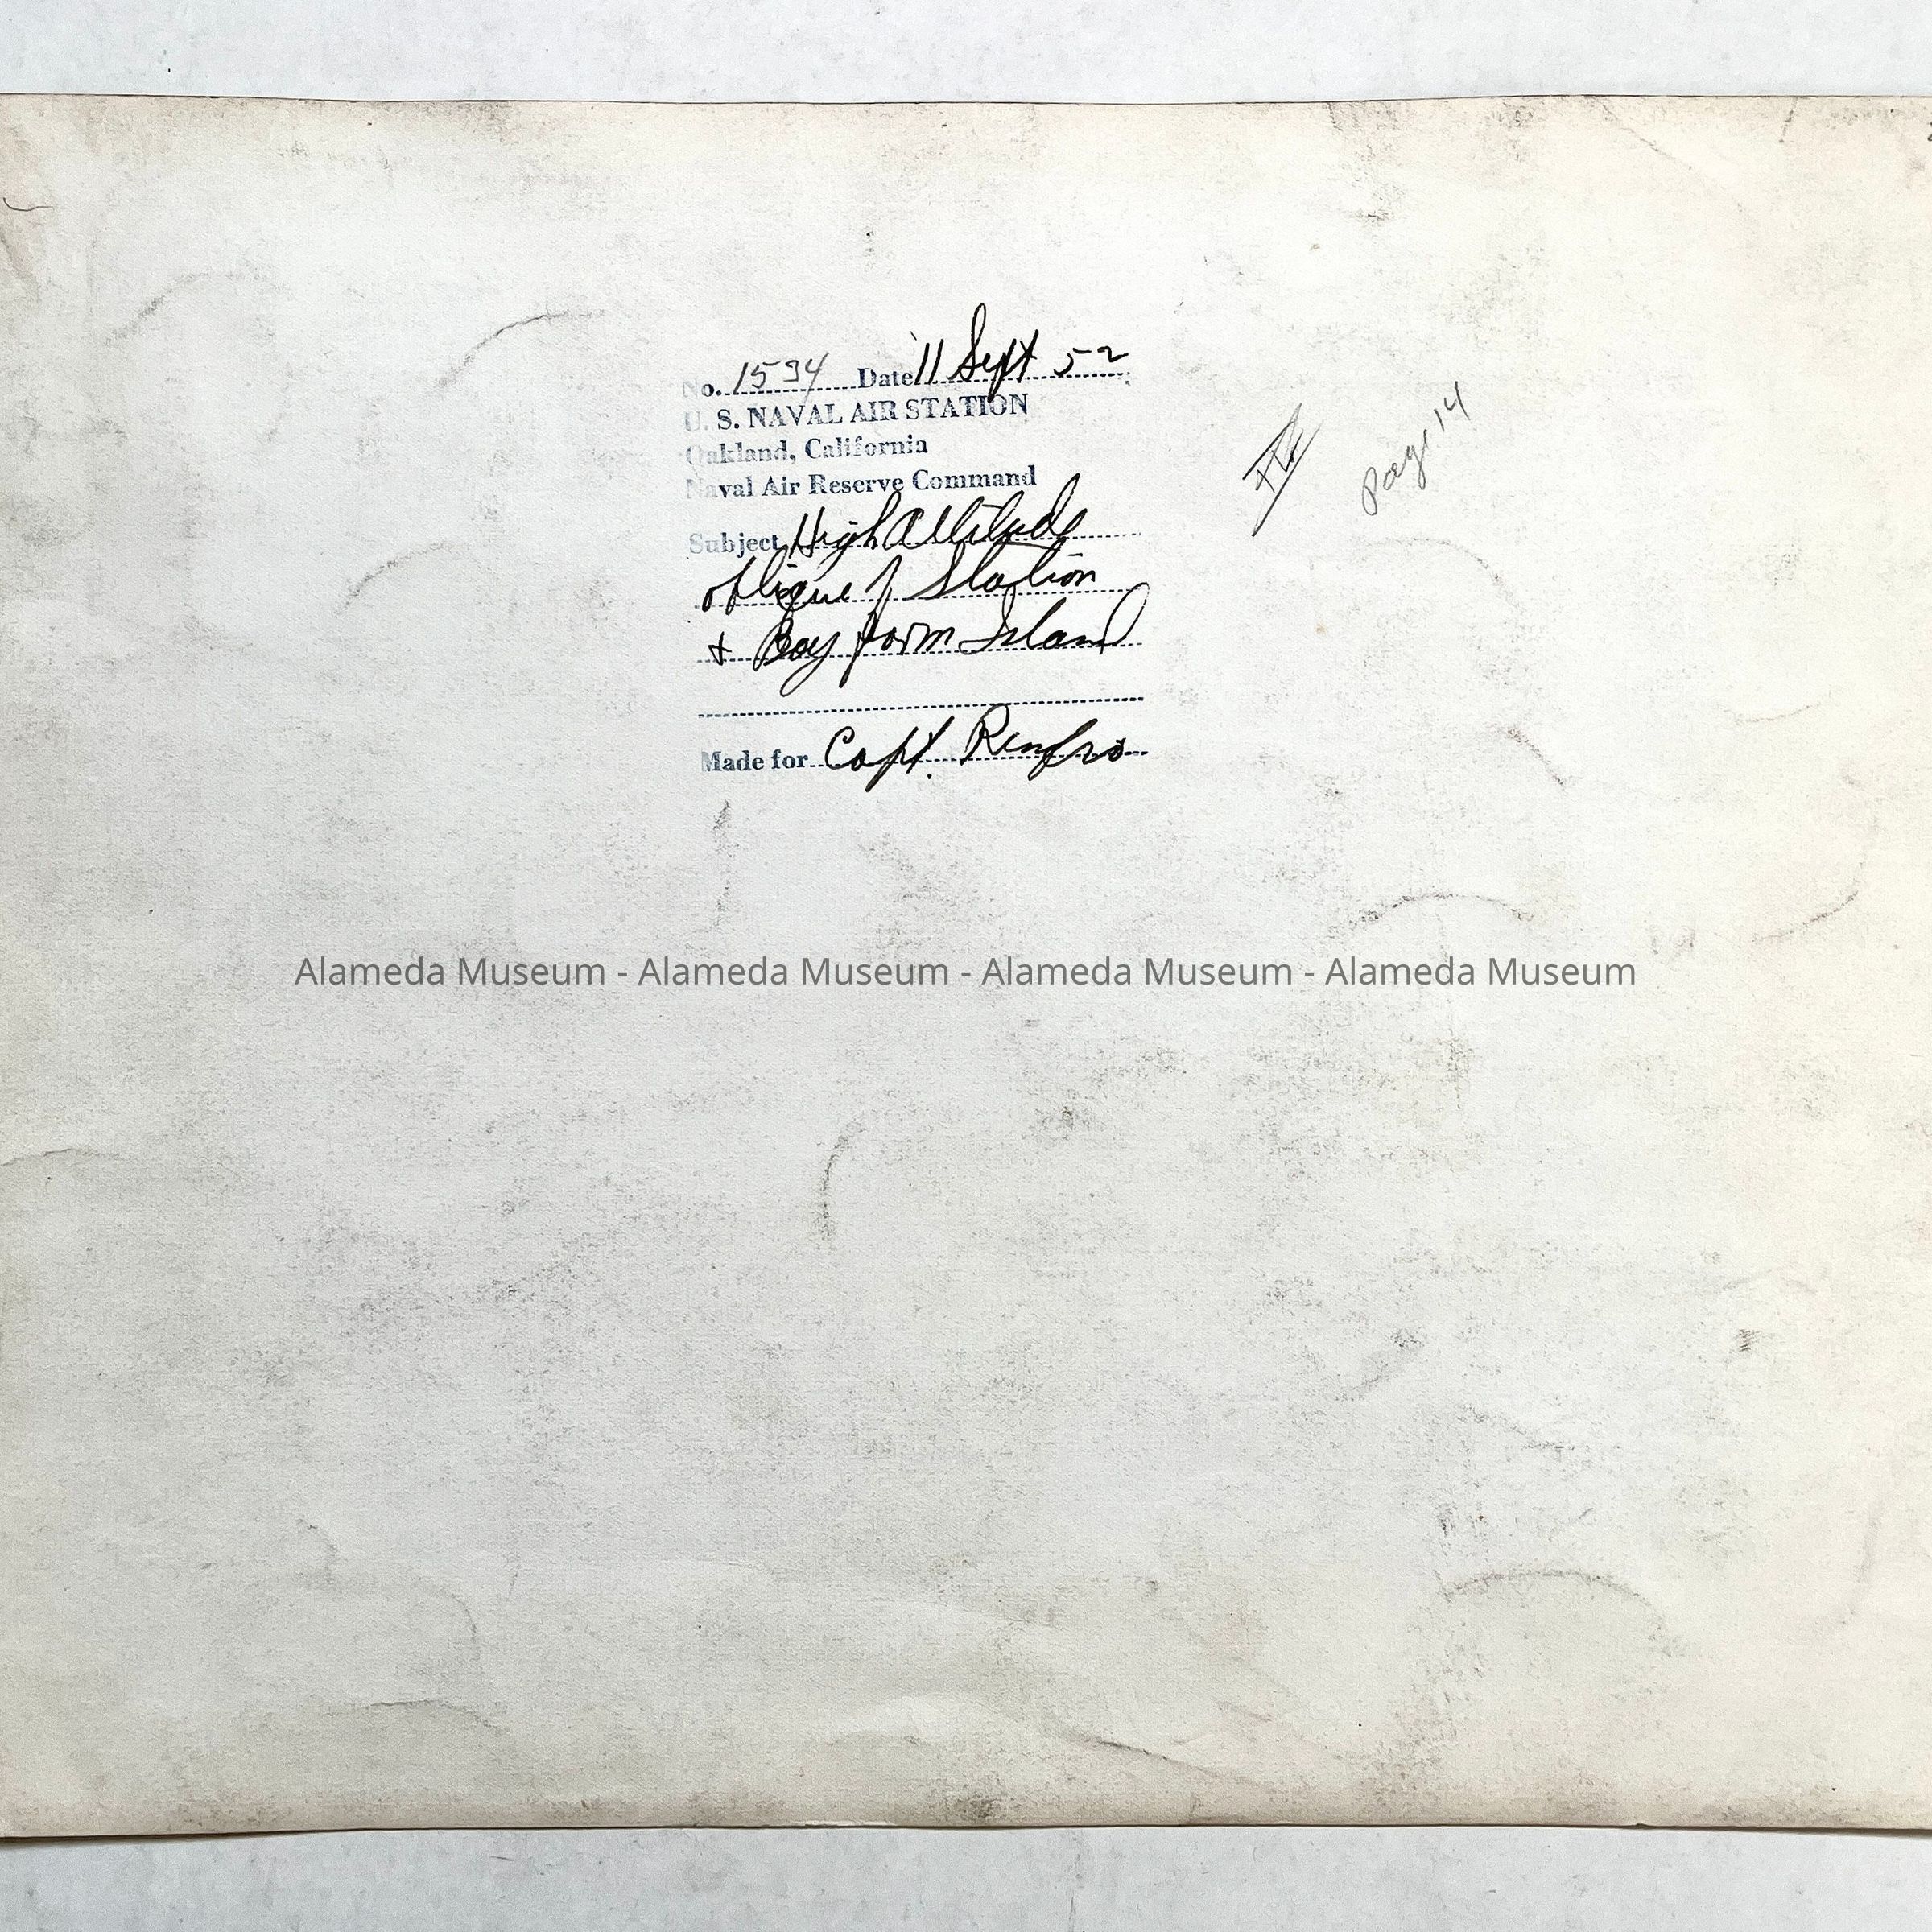 No. 1594 Date 11 Sept 52
U. S. NAVAL AIR STATION
Oakland, California
Naval Air Reserve Command
Subject High Altitude
oblique of Station
+ Bay farm Island
Made for Capt. Renfro
Page 14
Alameda Museum - Alameda Museum - Alameda Museum - Alameda Museum